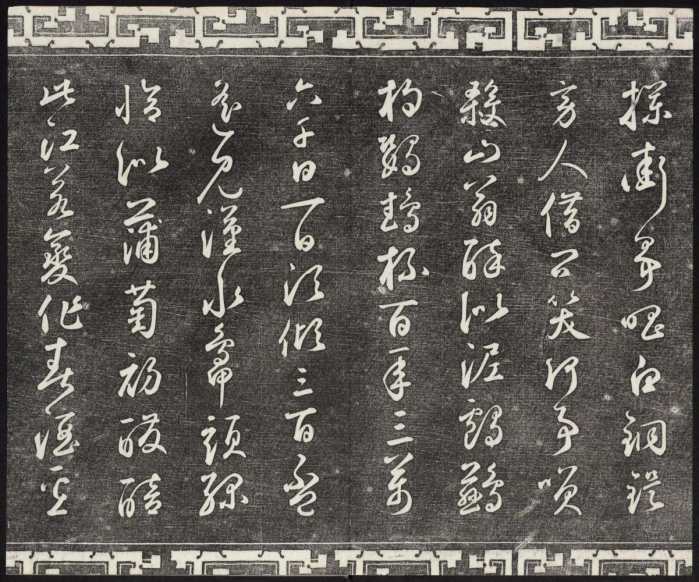 攔街爭唱白銅鍉
旁人借問笑何事笑
殺山翁醉似泥鸕鶿
杓鸚鵡杯百年三萬
六千日一日須傾三百盃
遙見漢水鴨頭綠
恰似蒲萄初醱醅
此江若變作春酒壘